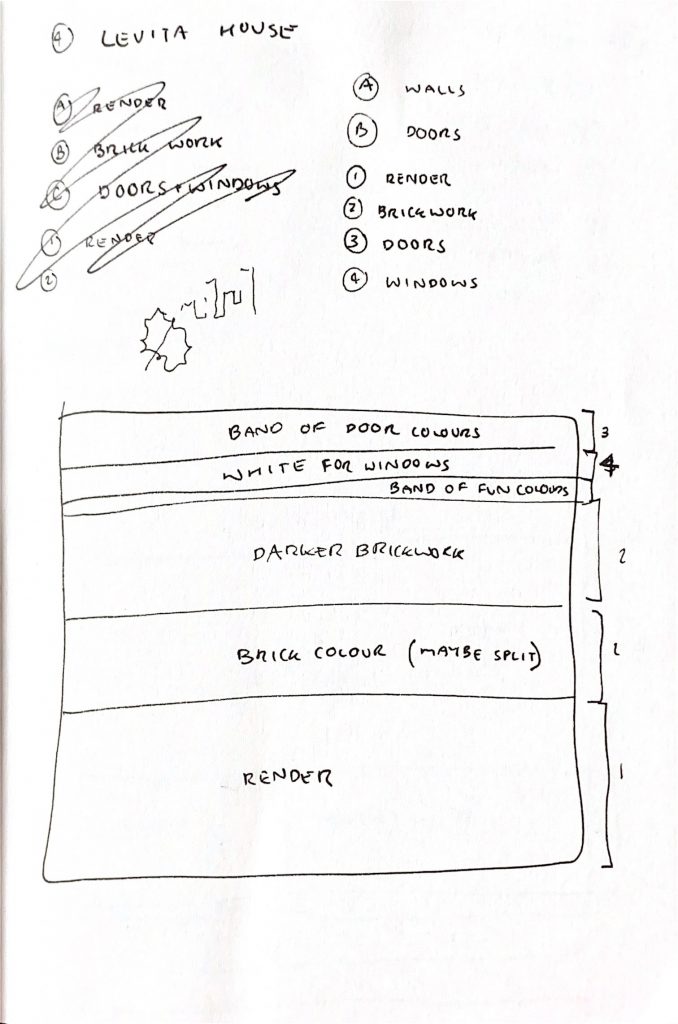 4 LEVITA HOUSE
A RENDER
B BRICK WORK
C DOORS + WINDOWS
1 RENDER
2
A WALLS
B DOORS
1 RENDER
2 BRICKWORK
3 DOORS
4 WINDOWS
BAND OF DOOR COLOURS 3
WHITE FOR WINDOWS 4
BAND OF FUN COLOURS
DARKER BRICKWORK 2
BRICK COLOUR (MAYBE SPLIT) 2
RENDER 1